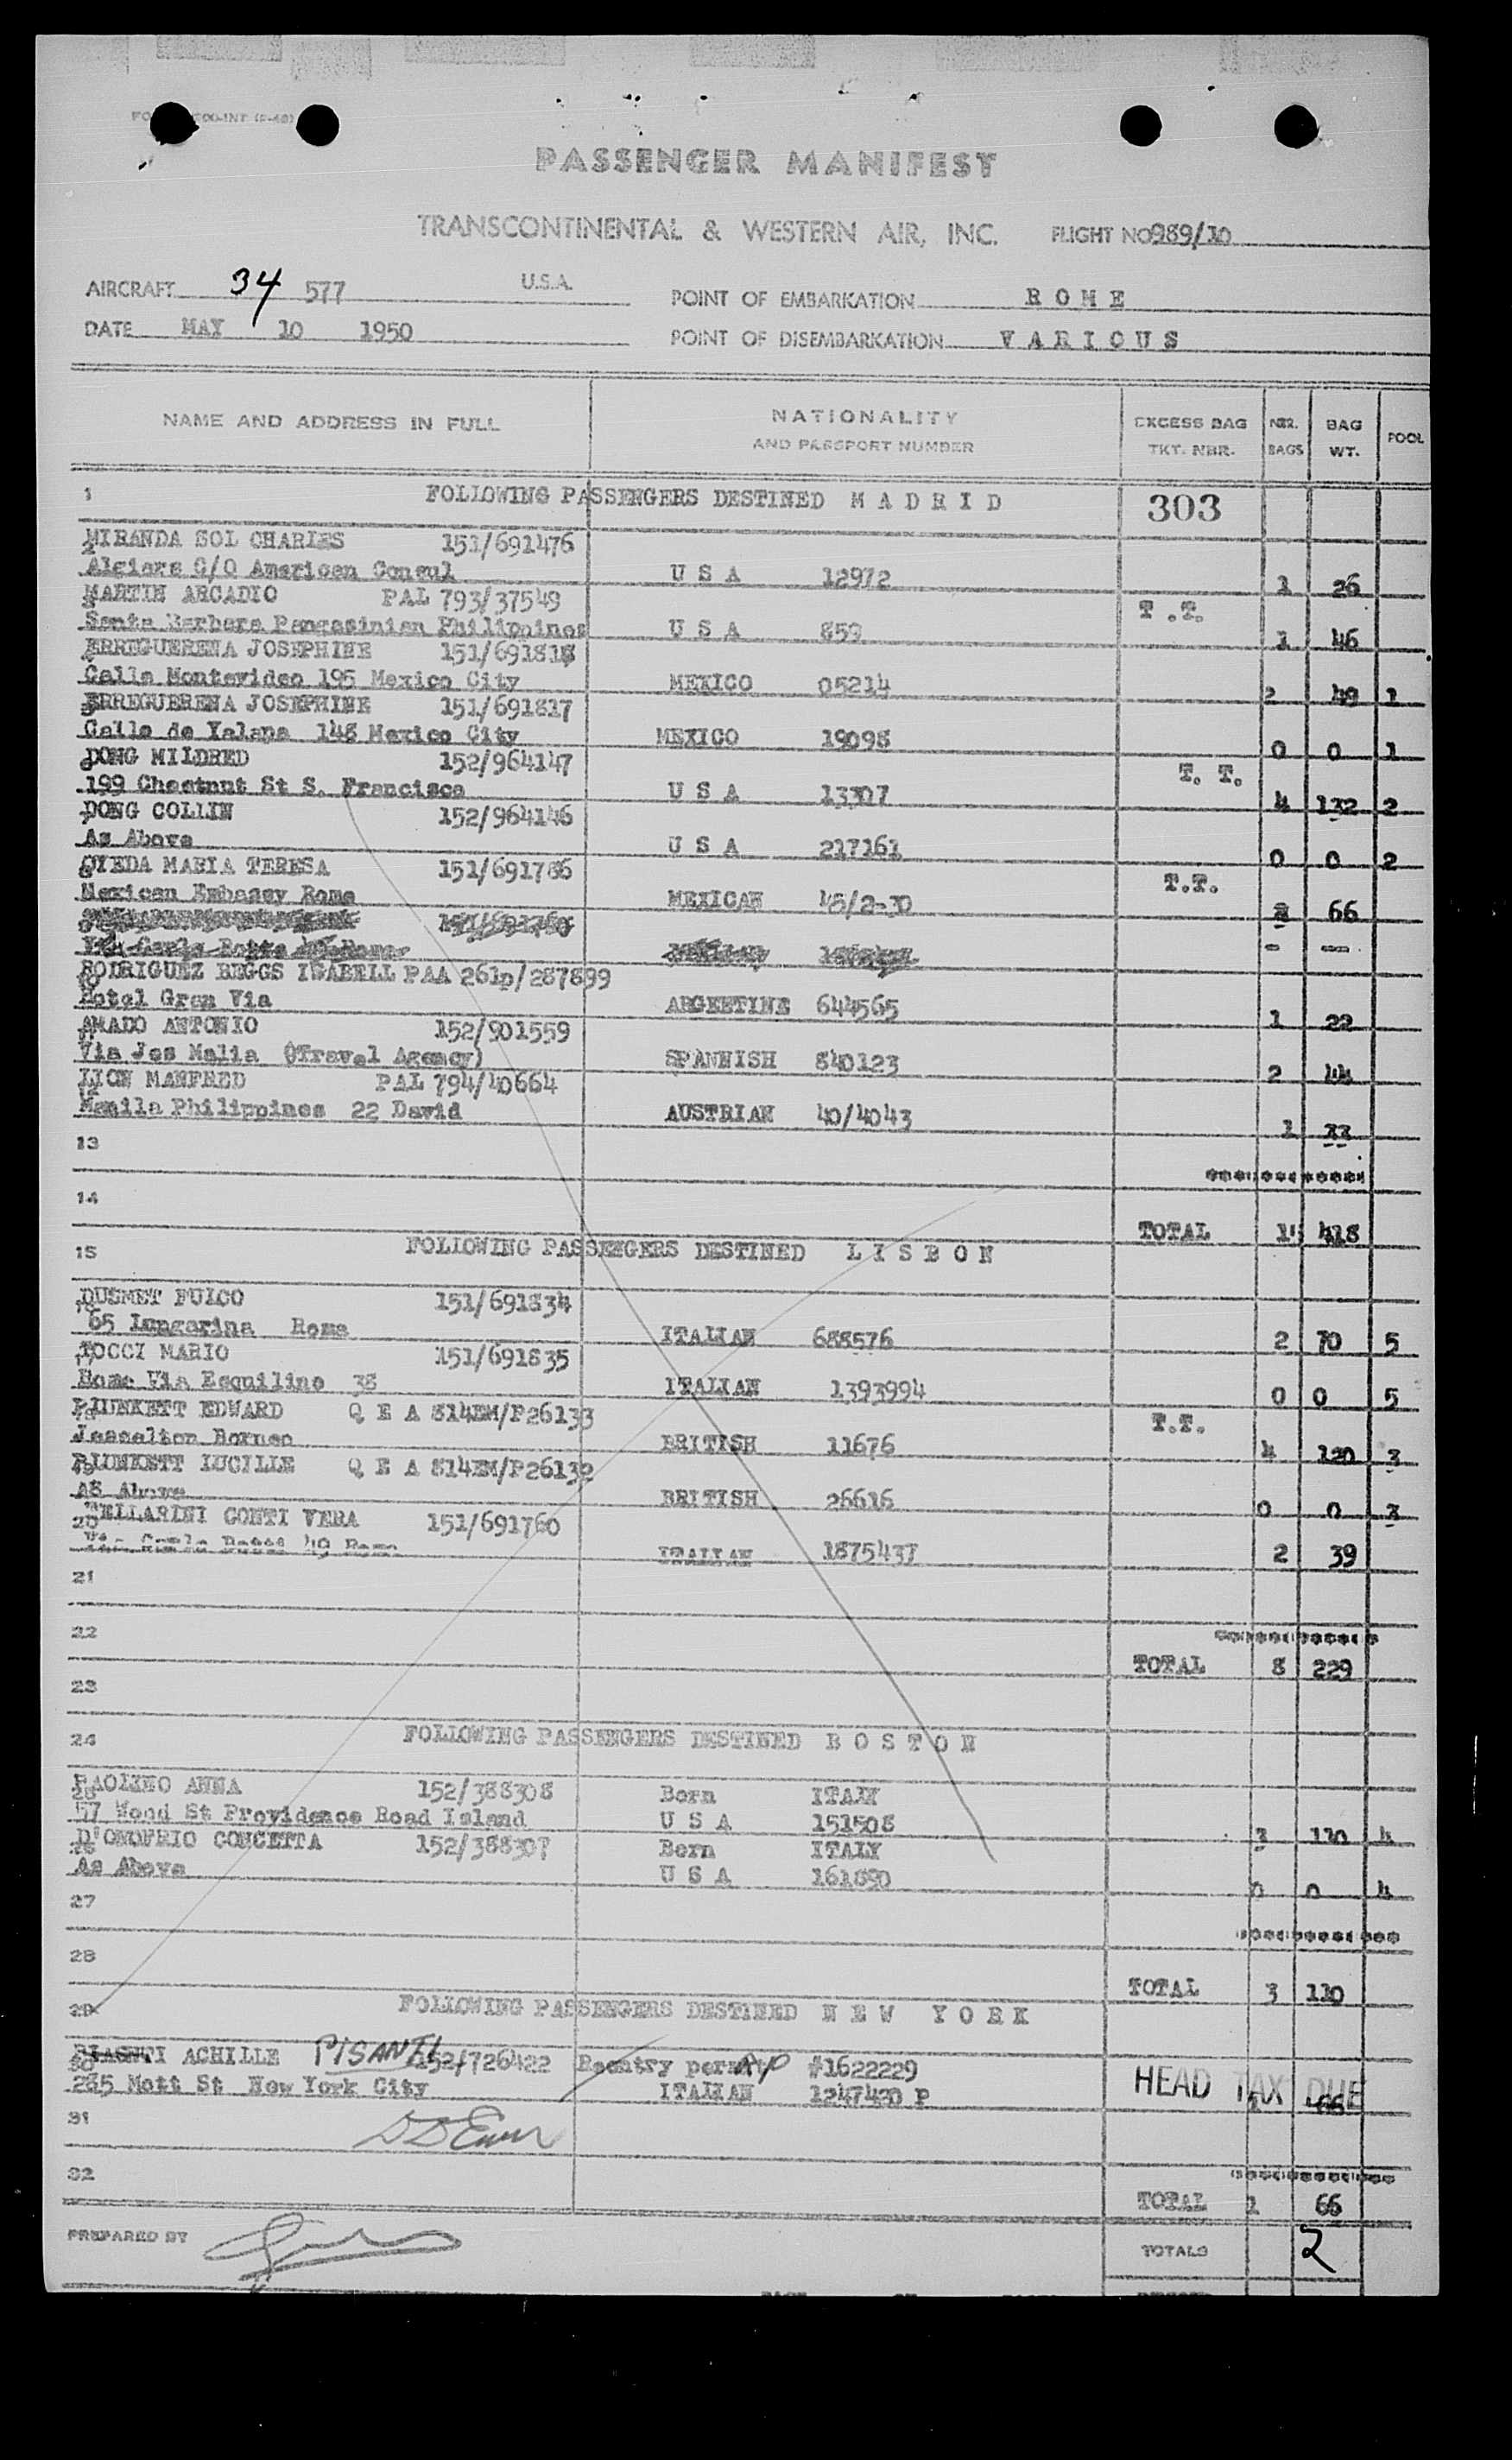 PASSENGER MANIFEST
TRANSCONTINENTAL & WESTERN AIR, INC. FLIGHT NO 989/10
AIRCRAFT 34 577 U.S.A. POINT OF EMBARKATION R O M E
DATE MAY 10 1950 POINT OF DISEMBARKATION V A R I O U S
NAME AND ADDRESS IN FULL NATIONALITY AND PASSPORT NUMBER EXCESS BAG TKT. NBR. NBR. BAGS BAG WT. POOL
1 FOLLOWING PASSENGERS DESTINED M A D R I D 303
MIRANDA SOL CHARLES 151/691476
Algiers C/O American Consul U S A 12972 1 26
MARTIN ARCADIO PAL 793/37549 T.T.
Santa Barbara Pangasinian Philippines U S A 859 1 46
ERREGUERENA JOSEPHINE 151/691818
Calla Montevideo 195 Mexico City MEXICO 05214 2 49 1
ERREGUERENA JOSEPHINE 151/691817
Calle de Xalapa 148 Mexico City MEXICO 19098 0 0 1
DONG MILDRED 152/964147 T. T.
199 Chestnut St S. Francisco U S A 13307 4 132 2
DONG COLLIN 152/964146
As Above U S A 217161 0 0 2
OJEDA MARIA TERESA 151/691786 T.T.
Mexican Embassy Rome MEXICAN 48/2-30 66
RODRIGUEZ BEGGS ISABELL PAA 261p/287899
Hotel Gran Via ARGENTINE 644565 1 22
AMADO ANTONIO 152/901559
Via Jos Malia (Travel Agency) SPANNISH 840123 2 44
LION MANFRED PAL 794/40664
Manila Philippines 22 David AUSTRIAN 40/4043 1 33
13
14 TOTAL 418
15 FOLLOWING PASSENGERS DESTINED L I S B O N
DUSMET FULCO 151/691834
65 Lungarina Rome ITALIAN 688576 2 70 5
TOCCI MARIO 151/691835
Rome Via Esquilino 38 ITALIAN 1393994 0 0 5
PLUNKETT EDWARD Q E A 814EM/P26133 T.T.
Jesselton Borneo BRITISH 11676 4 120 3
PLUNKETT LUCILLE Q E A 814EM/P26132
AS Above BRITISH 26616 0 0 3
TELLARINI CONTI VERA 151/691760
Via Carlo 49 Rome ITALIAN 1875437 2 39
21
22
TOTAL 8 229
23
24 FOLLOWING PASSENGERS DESTINED B O S T O N
PAOLINO ANNA 152/388308 Born ITALY
57 Wood St Providence Road Island U S A 151508 3 110 4
D'ONOFRIO CONCETTA 152/388307 Born ITALY
As Above U S A 161830 0 0 4
27
28 TOTAL 3 110
29 FOLLOWING PASSENGERS DESTINED N E W Y O R K
ACHILLE PISANTI 152/726422 Reentry permit #1622229
285 Mott St New York City ITALIAN 1247420 P HEAD TAX DUE 66
31
32
TOTAL 1 66
PREPARED BY TOTALS 2